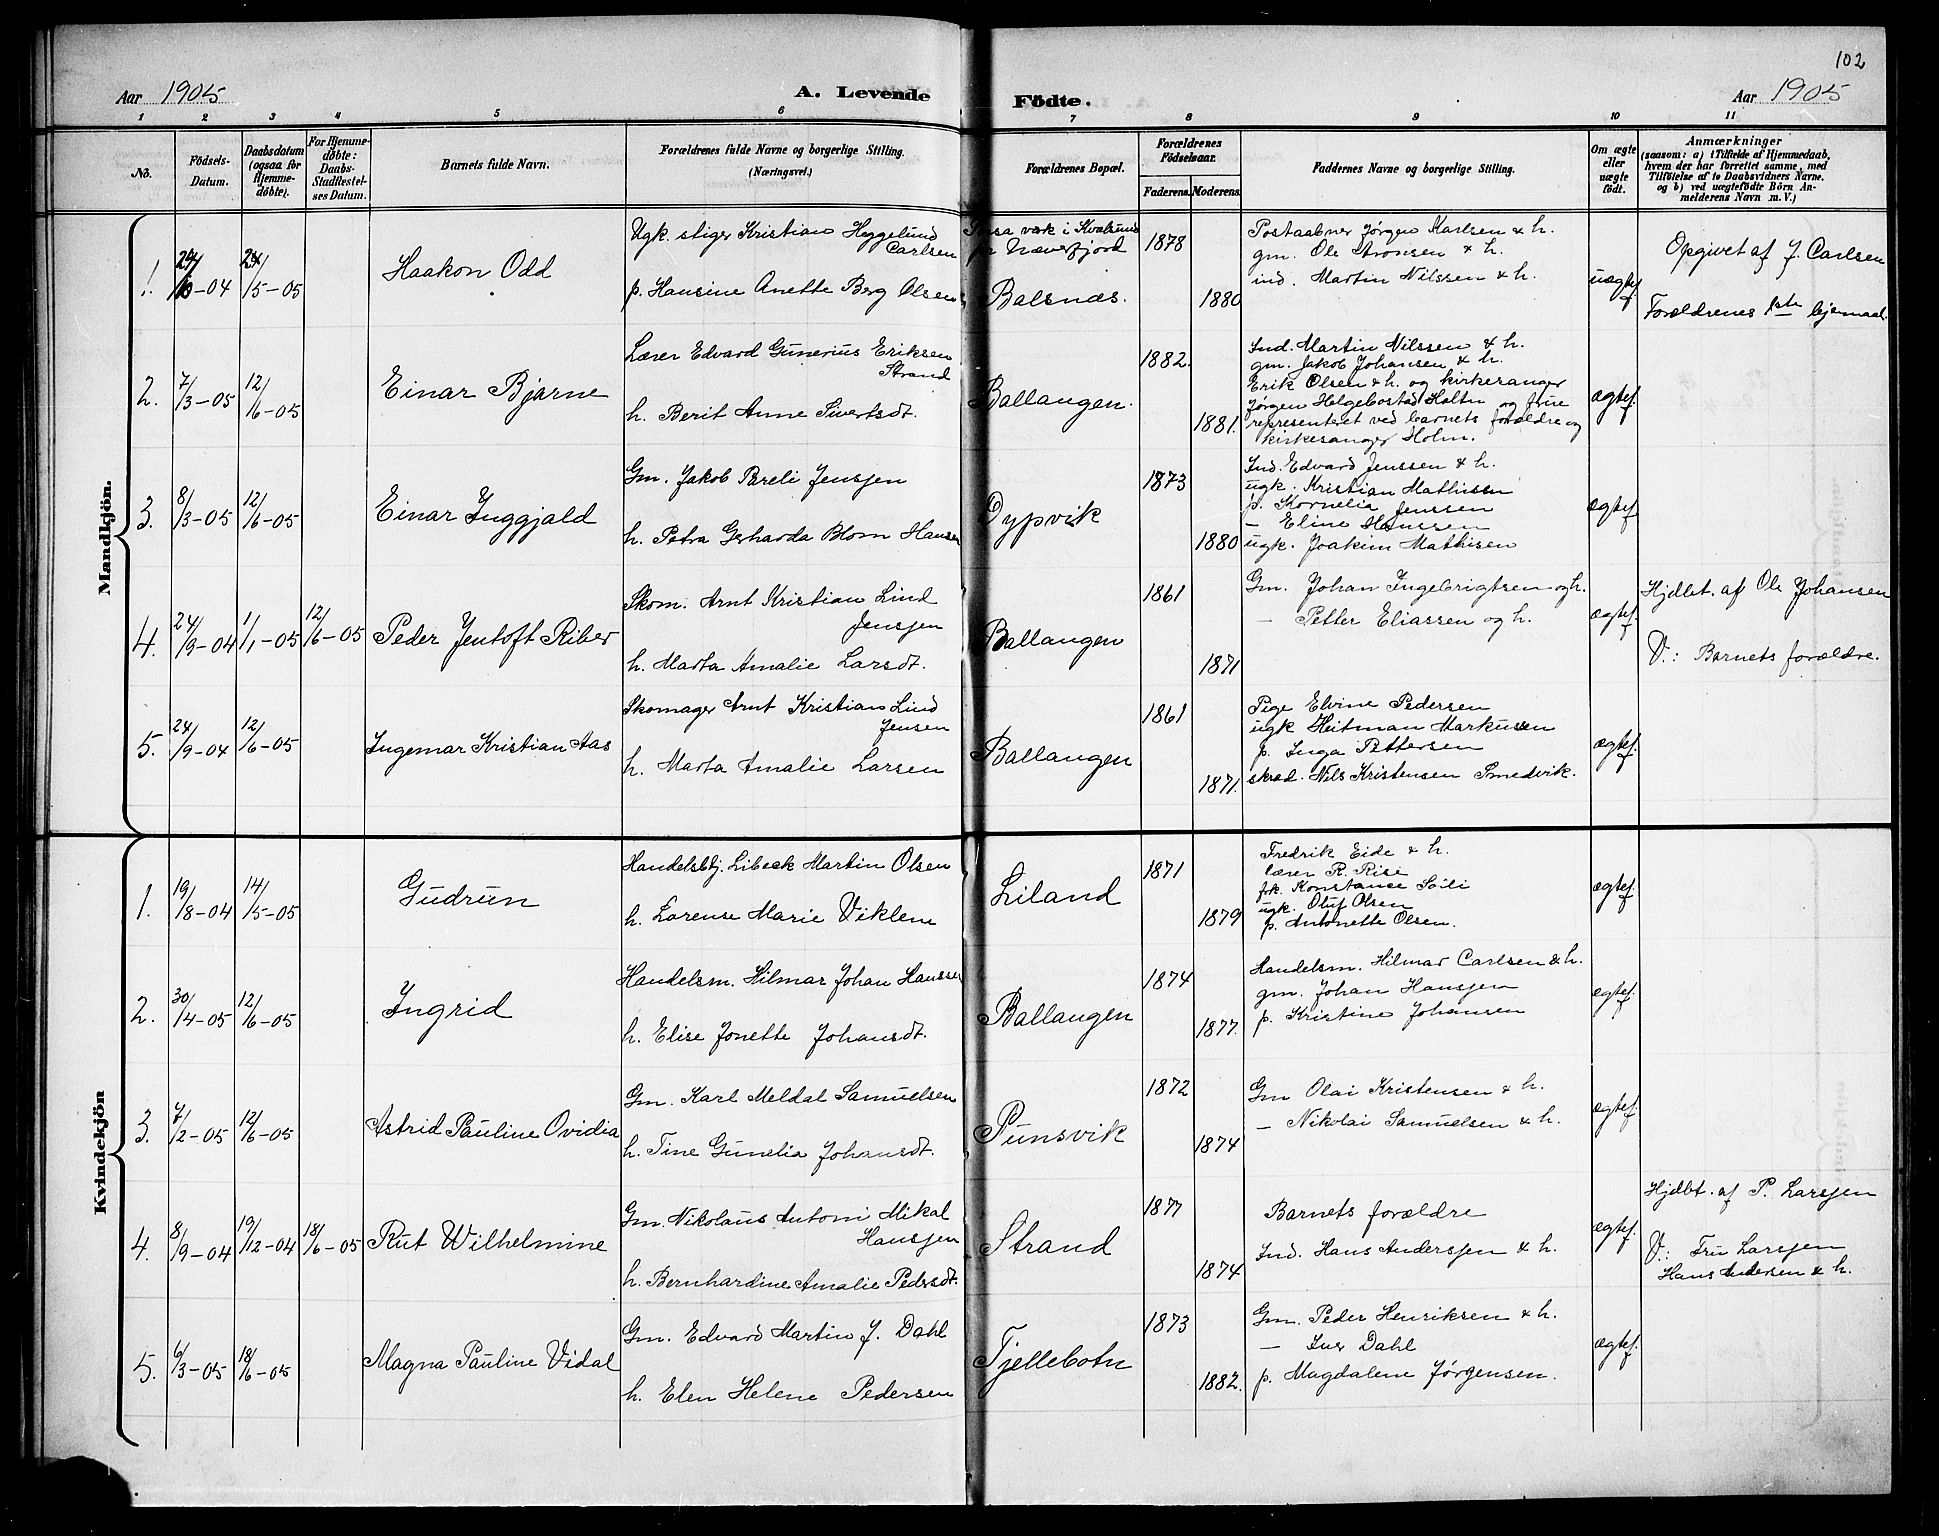 102
Aar 1905
A. Levende Födte.
Aar 1905
1 2 3 4 5 6 7 8 9 10 11
No.
Födsels-
Datum.
Daabsdatum
(ogsaa for
Hjemme-
döbte).
For Hjemme-
döbte:
Daabs-
Stadfæstel-
ses Datum.
Barnets fulde Navn.
Forældrenes fulde Navne og borgerlige Stilling.
(Næringsvei.)
Forældrenes Bopæl.
Forældrenes
Födselsaar.
Faderens. Moderens.
Faddernes Navne og borgerlige Stilling.
Om ægte
eller
uægte
födt.
Anmærkninger
(saasom: a) i Tilfælde af Hjemmedaab,
hvem der har forrettet samme, med
Tilföielse af to Daabsvidners Navne,
og b) ved uægtefödte Börn An-
melderens Navn m. V.)
Mandkjön.
1.
/10-04
/5-05
Haakon Odd
Ugk. stiger Kristian Heggelund
Carlsen
p. Hansine Anette Berg Olsen
vær i Kvalsund
pr Næverfjord
Balsnæs.
1878
1880
Postaabner Jørgen Karlsen & h.
gm. Ole Aronsen & h.
ind. Martin Nilssen & h.
uægtef.
Opgivet af J. Carlsen
Forældrenes 1ste leiermaal.
2.
7/3-05
12/6-05
Einar Bjarne
Lærer Edvard Gunerius Eriksen
Strand
h. Berit Anne Sivertsdt.
Ballangen.
1882.
1881.
Ind. Martin Nilssen & h.
gm. Jakob Johansen & h.
Erik Olsen & h. og kirkesanger
Jørgen Helgebostad Holtn og frue
representeret ved barnets forældre og
kirkesanger Holm.
ægtef.
3.
8/3-05
12/6-05
Einar Inggjald
Gm. Jakob Pareli Jensjen
h. Petra Gerharda Blom Hansen
Dypvik
1873
1880
Ind. Edvard Jenssen & h.
ugk. Kristian Mathisen
p. Kornelia Jenssen
— Eline Hanssen
ugk. Joakim Mathisen
ægtef.
4.
24/9-04
1/1-05
12/6-05
Peder Jentoft Riber
Skom. Arnt Kristian Lind
Jensjen
h. Marta Amalie Larsdt.
Ballangen
1861
1871
Gm. Johan Ingebrigtsen og h.
— Petter Eliassen og h.
ægtef.
Hjdbt. af Ole Johansen
V.: Barnets forældre.
5.
24/9-04
12/6-05
Ingemar Kristian Aas
Skomager Arnt Kristian Lind
Jensen
h. Marta Amalie Larsen
Ballangen
1861
1871.
Pige Elvine Pedersen
ugk Heitman Markussen
p. Inga Pettersen
skræd. Nils Kristensen Smedvik.
ægtef.
Kvindekjön
1.
19/8-04
14/5-05
Gudrun
Handelsbtj. Libeck Martin Olsen
h. Lorense Marie Viklem
Liland
1871
1879
Fredrik Eide & h.
lærer R. Rise
frk. Konstance Soli
ugk. Oluf Olsen
p. Antonette Olsen.
ægtef.
2.
30/4-05
12/6-05
Ingrid
Handelsm. Hilmar Johan Hanssen
h. Elise Jonette Johansdt.
Ballangen
1874
1877.
Handelsm. Hilmar Carlsen & h.
gm. Johan Hansjen
p. Kristine Johansen
ægtef.
3.
7/2-05
12/6-05
Astrid Pauline Ovidia
Gm. Karl Meldal Samuelsen
h. Tine Gunelia Johansdt.
Punsvik
1872
1874
Gm Olai Kristensen & h.
— Nikolai Samuelsen & h.
ægtef.
4.
8/9-04
19/12-04
18/6-05
Rut Wilhelmine
Gm. Nikolaus Antoni Mikal
Hansjen
h. Bernhardine Amalie Pedersdt.
Strand
1877
1874
Barnets forældre
Ind. Hans Andersjen & h.
ægtef.
Hjdbt. af P. Larsjen
V.: Fru Larsjen
Hans Andersen & h.
5.
6/3-05
18/6-05
Magna Pauline Vidal
Gm. Edvard Martin J. Dahl
h. Elen Helene Pedersen
Tjellebotn
1873
1882.
Gm. Peder Henriksen & h.
— Iver Dahl
p. Magdalene Jørgensen.
ægtef.